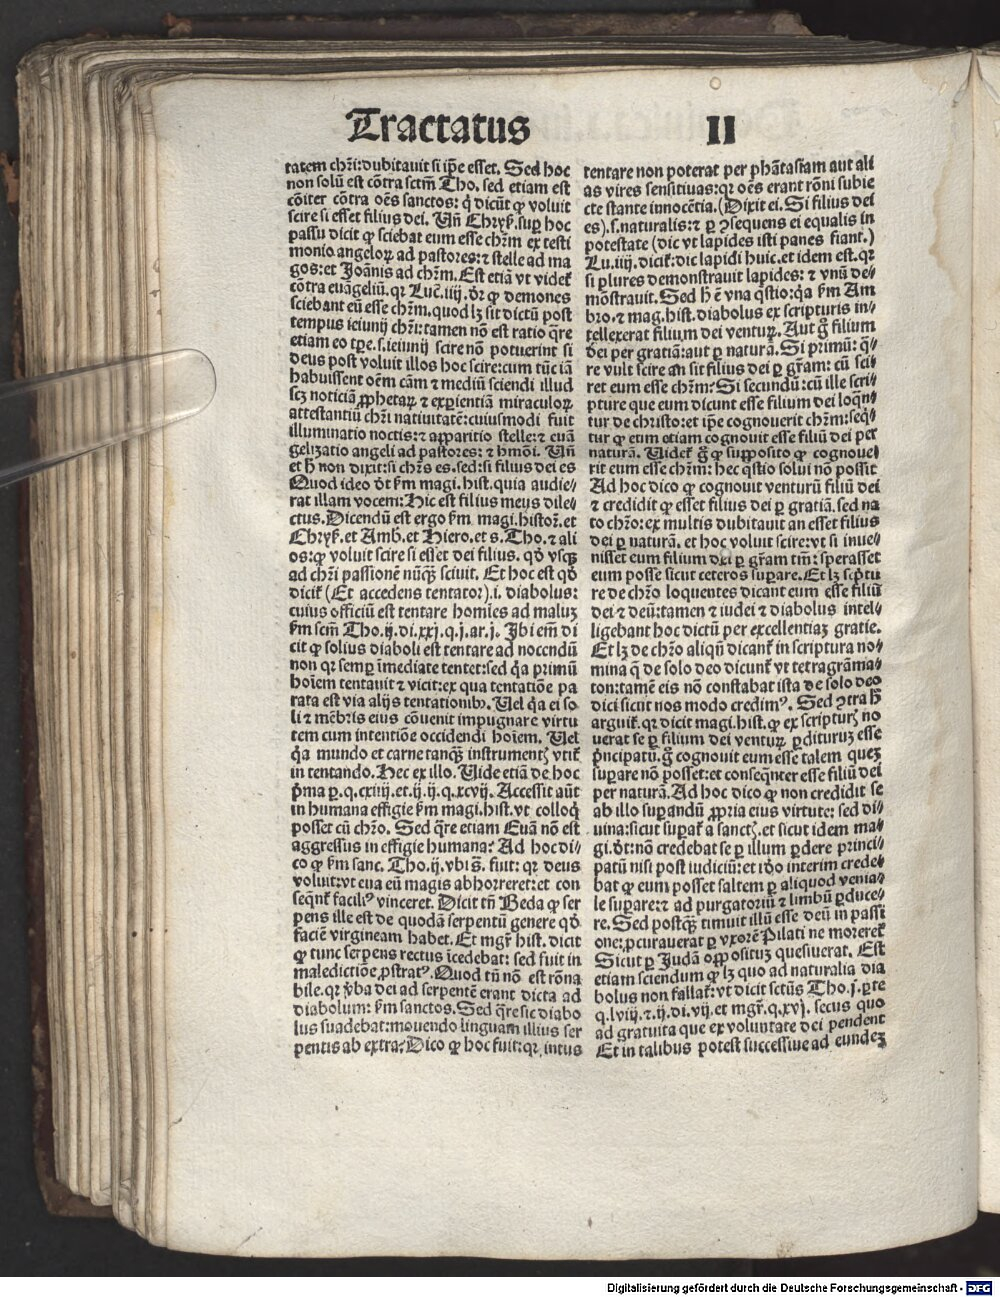 Tractatus II
tatem chr̄i: dubitauit si ip̄e esset. Sed hoc
non solū est cōtra sctm̄ Tho. sed etiam est
cōiter cōtra oēs sanctos: q̇ dicūt ꝙ voluit
scire si esset filius dei. Un̄ Chryſ. sup hoc
passu dicit ꝙ sciebat eum esse chr̄m ex testi
monio angeloꝝ ad pastores: ⁊ stelle ad ma
gos: et Joānis ad chr̄m. Est etiā vt videt̄
cōtra euāgeliū. qꝛ Luc̄. iiij. d̄r ꝙ demones
sciebant eū esse chr̄m. quod lꝫ sit dictū post
tempus ieiunij chr̄i: tamen nō est ratio q̄re
etiam eo tꝑe. s. ieiunij scire nō potuerint si
deus post voluit illos hoc scire: cum tūc iā
habuissent oēm cām ⁊ mediū sciendi illud
scꝫ noticiā ꝓphetaꝝ ⁊ exꝑientiā miraculoꝝ
attestantiū chr̄i natiuitatē: cuiusmodi fuit
illuminatio noctis: ⁊ apparitio stelle: ⁊ euā
gelizatio angeli ad pastores: ⁊ hmōi. Un̄
et h̄ non dixit: si chr̄s es. sed: si filius dei es
Quod ideo d̄t ẜm magi. hist. quia audie⸗
rat illam vocem: Hic est filius meus dile⸗
ctus. Dicendū est ergo ẜm magi. histoꝛ. et
Chryſ. et Amb. et Hiero. et s. Tho. ⁊ ali
os: ꝙ voluit scire si esset dei filius. qd̄ vsqꝫ
ad chr̄i passionē nūqꝫ sciuit. Et hoc est qd̄
dicit̄ (Et accedens tentator). i. diabolus:
cuius officiū est tentare homīes ad maluꝫ
ẜm scm̄ Tho. ij. di. xxj. q. j. ar. j. Ibi em̄ di
cit ꝙ solius diaboli est tentare ad nocendū
non qꝛ semꝑ īmediate tentet: sed q̇a primū
hoīem tentauit ⁊ vicit: ex qua tentatiōe pa
rata est via alijs tentationibꝰ. Uel q̇a ei so⸗
li ⁊ mēbris eius cōuenit impugnare virtu
tem cum intentiōe occidendi hoīem. Uel
q̇a mundo et carne tanqꝫ instrumentꝭ vtit̄
in tentando. Hec ex illo. Uide etiā de hoc
p̄ma ꝑ. q. cxiiij. et. ij. ij. q. xcvij. Accessit aūt
in humana effigie ẜm magi. hist. vt colloq̇
posset cū chr̄o. Sed q̄re etiam Euā nō est
aggressus in effigie humana? Ad hoc di⸗
co ꝙ ẜm sanc. Tho. ij. vbi s̄. fuit: qꝛ deus
voluit: vt eua eū magis abhorreret: et con
seqn̄t̄ faciliꝰ vinceret. Dicit tn̄ Beda ꝙ ser
pens ille est de quodā serpentū genere qd̄
faciē virgineam habet. Et mgr̄ hist. dicit
ꝙ tunc serpens rectus īcedebat: sed fuit in
maledictiōe ꝓstratꝰ. Quod tn̄ nō est rōna
bile. qꝛ v̄ba dei ad serpentē erant dicta ad
diabolum: ẜm sanctos. Sed q̄re sic diabo
lus suadebat: mouendo linguam illius ser
pentis ab extra? Dico ꝙ hoc fuit: qꝛ intus
tentare non poterat per phātasiam aut ali
as vires sensitiuas: qꝛ oēs erant rōni subie
cte stante innocētia. (Dixit ei. Si filius dei
es). s. naturalis: ⁊ ꝑ ꝯsequens ei equalis in
potestate (dic vt lapides isti panes fiant.)
Lu. iiij. dicit̄: dic lapidi huic. et idem est. qꝛ
si plures demonstrauit lapides: ⁊ vnū de⸗
mōstrauit. Sed h̄ ē vna q̄stio: q̇a ẜm Am
bro. ⁊ mag. hist. diabolus ex scripturis in⸗
tellexerat filium dei ventuꝝ. Aut g̊ filium
dei per gratiā: aut ꝑ naturā. Si primū: q̄⸗
re vult scire an sit filius dei ꝑ gr̄am: cū sci⸗
ret eum esse chr̄m? Si secundū: cū ille scri⸗
pture que eum dicunt esse filium dei loqn̄⸗
tur de christo: et ip̄e cognouerit chr̄m: seq̇⸗
tur ꝙ etim etiam cognouit esse filiū dei per
naturā. Uidet̄ g̊ ꝙ supposito ꝙ cognoue⸗
rit eum esse chr̄m: hec q̄stio solui nō possit
Ad hoc dico ꝙ cognouit venturū filiū dei
⁊ credidit ꝙ esset filius dei ꝑ gratiā. sed na
to chr̄o: ex multis dubitauit an esset filius
dei ꝑ naturā. et hoc voluit scire: vt si inue⸗
nisset eum filium dei ꝑ gr̄am tm̄: sperasset
eum posse sicut ceteros suꝑare. Et lꝫ scptu
re de chr̄o loquentes dicant eum esse filiū
dei ⁊ deū: tamen ⁊ iudei ⁊ diabolus intel⸗
ligebant hoc dictū per excellentiaꝫ gratie.
Et lꝫ de chr̄o aliqn̄ dicant̄ in scriptura no⸗
mina q̄ de solo deo dicunt̄ vt tetragrāma⸗
ton: tamē eis nō constabat ista de solo deo
dici sicut nos modo credimꝰ. Sed ꝯtra h̄
arguit̄. qꝛ dicit magi. hist. ꝙ ex scripturꝭ no
uerat se ꝑ filium dei ventuꝝ ꝑdituruꝫ esse
p̄ncipatū. g̊ cognouit eum esse talem queꝫ
suꝑare nō posset: et conseqn̄ter esse filiū dei
per naturā. Ad hoc dico ꝙ non credidit se
ab illo suꝑandū ꝓpria eius virtute: sed di⸗
uina: sicut suꝑat̄ a sanctꝭ. et sicut idem ma⸗
gi. d̄t: nō credebat se ꝑ illum ꝑdere princi⸗
patū nisi post iudiciū: et iō interim crede⸗
bat ꝙ eum posset saltem ꝑ aliquod venia⸗
le suꝑare: ⁊ ad purgatoriū ⁊ limbū ꝑduce⸗
re. Sed postqꝫ timuit illū esse deū in passi
one: ꝓcurauerat ꝑ vxorē Pilati ne moreret̄
Sicut ꝑ Judā oppositū quesiuerat. Est
etiam sciendum ꝙ lꝫ quo ad naturalia dia
bolus non fallat̄: vt dicit sctūs Tho. j. ꝑte
q. lviij. ⁊. ij. di. vij. et mgr̄. q. xvj. secus quo
ad gratuita que ex voluntate dei pendent
Et in talibus potest successiue ad eundeꝫ
Digitalisierung gefördert durch die Deutsche Forschungsgemeinschaft - DFG